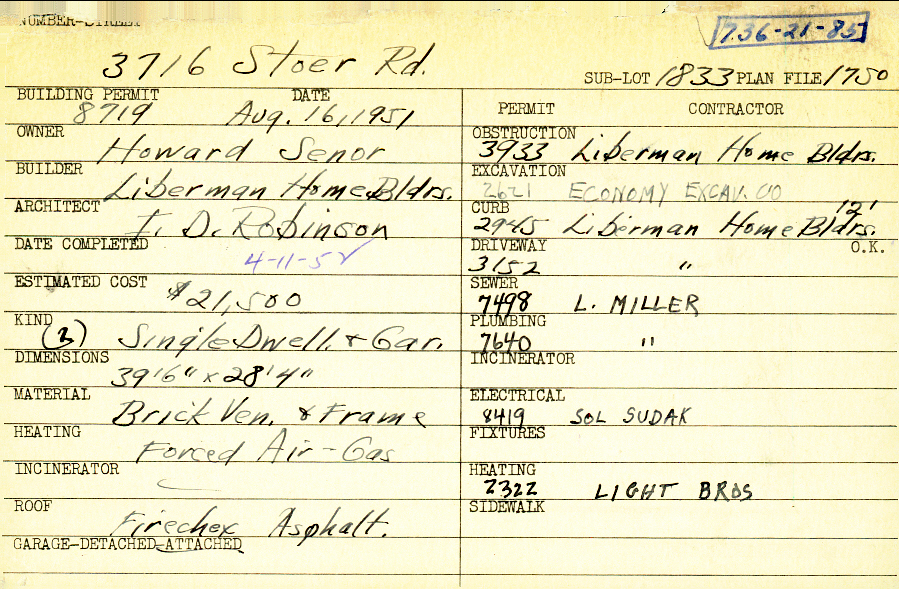 NUMBER-STREET
736-21-85
3716 Stoer Rd.
SUB-LOT 1833 PLAN FILE 1750
BUILDING PERMIT DATE
8719 Aug. 16, 1951
OWNER
Howard Senor
BUILDER
Liberman Home Bldrs.
ARCHITECT
F. D. Robinson
DATE COMPLETED
4-11-52
ESTIMATED COST
$21,500
KIND
(2) Single Dwell. & Gar.
DIMENSIONS
39'6" x 28'4"
MATERIAL
Brick Ven. & Frame
HEATING
Forced Air-Gas
INCINERATOR
ROOF
Firechex Asphalt.
GARAGE-DETACHED-ATTACHED
PERMIT CONTRACTOR
OBSTRUCTION
3933 Liberman Home Bldrs.
EXCAVATION
2621 ECONOMY EXCAV. CO
CURB 12'
2945 Liberman Home Bldrs.
DRIVEWAY O.K.
3152 "
SEWER
7498 L. MILLER
PLUMBING
7640 "
INCINERATOR
ELECTRICAL
8419 SOL SUDAK
FIXTURES
HEATING
2322 LIGHT BROS
SIDEWALK